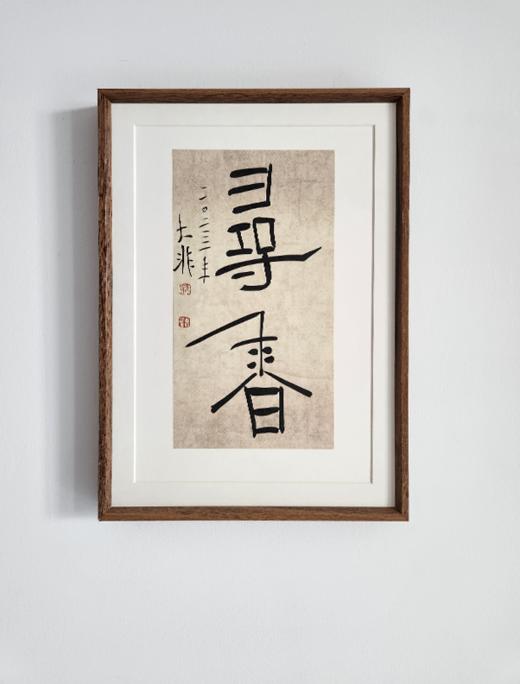 尋香
二〇二三年
大非